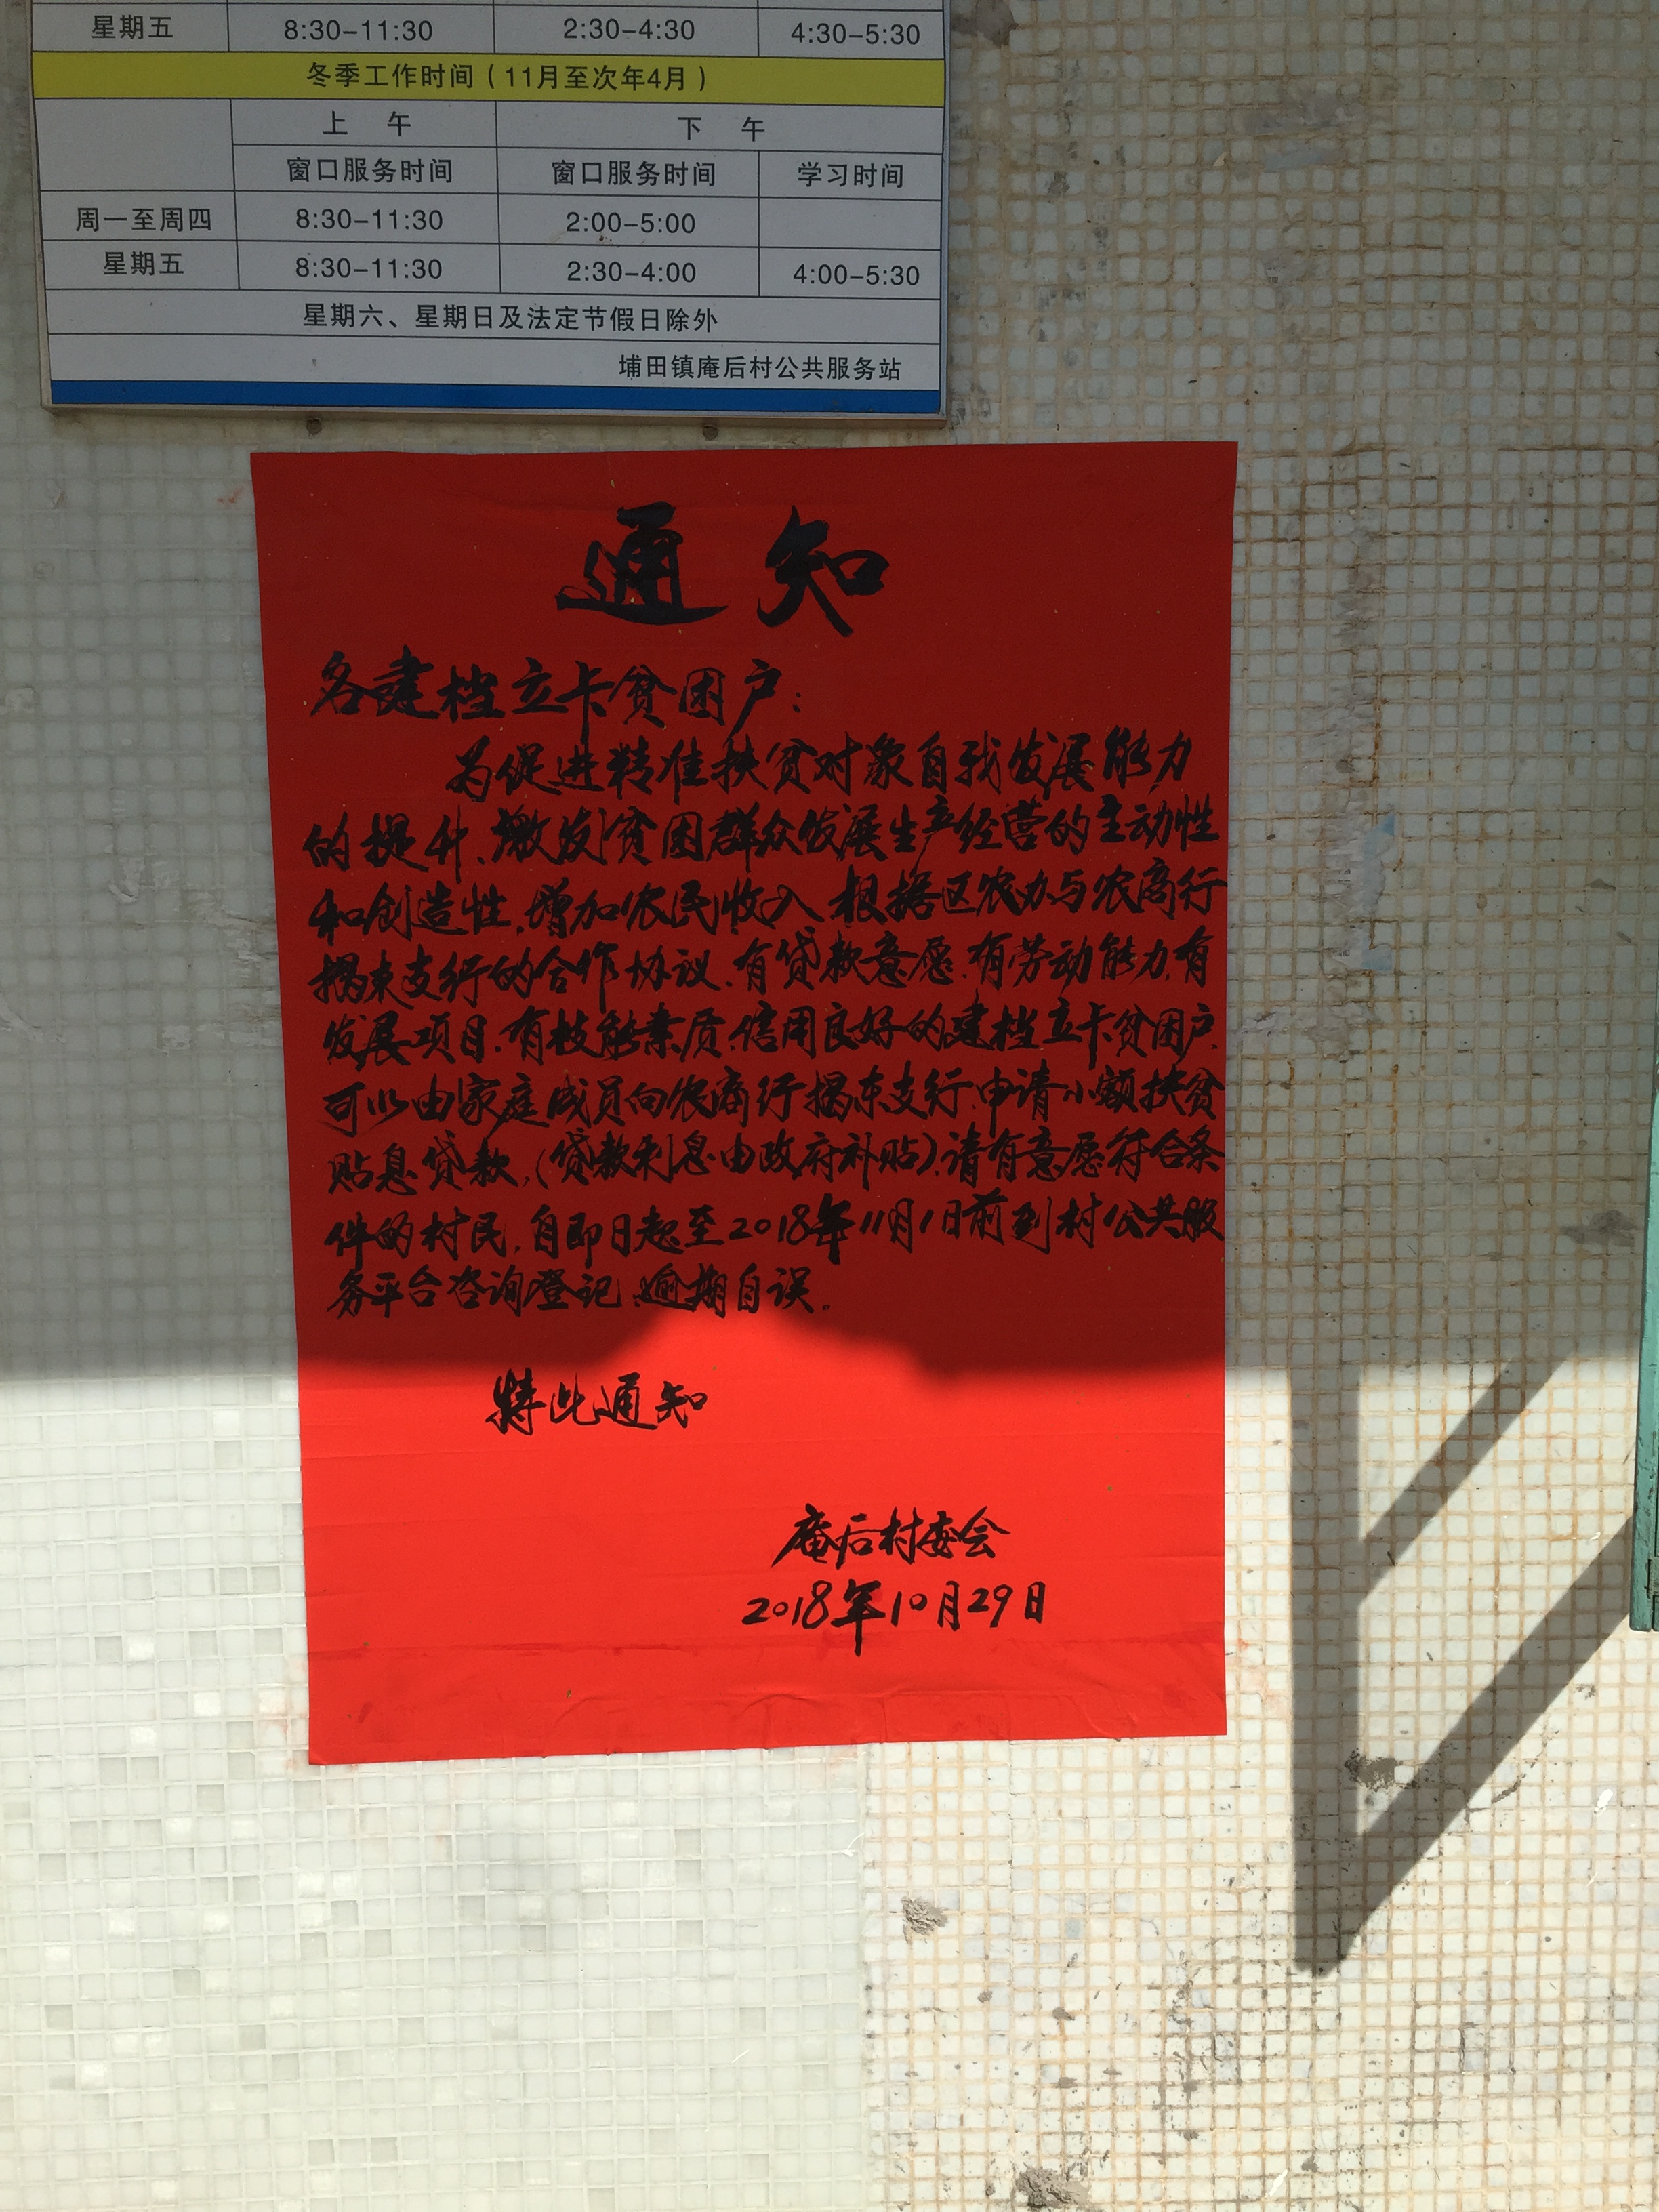 星期五 8:30-11:30 2:30-4:30 4:30-5:30
冬季工作时间（11月至次年4月）
上 午 下 午
窗口服务时间 窗口服务时间 学习时间
周一至周四 8:30-11:30 2:00-5:00
星期五 8:30-11:30 2:30-4:00 4:00-5:30
星期六、星期日及法定节假日除外
埔田镇庵后村公共服务站
通知
各建档立卡贫困户：
为促进精准扶贫对象自我发展能力
的提升、激发贫困群众发展生产经营的主动性
和创造性，增加农民收入，根据区农办与农商行
揭东支行的合作协议，有贷款意愿、有劳动能力、有
发展项目、有技能素质、信用良好的建档立卡贫困户，
可以由家庭成员向农商行揭东支行，申请小额扶贫
贴息贷款，（贷款利息由政府补贴），请有意愿符合条
件的村民，自即日起至2018年11月1日前到村公共服
务平台咨询登记，逾期自误。
特此通知
庵后村委会
2018年10月29日